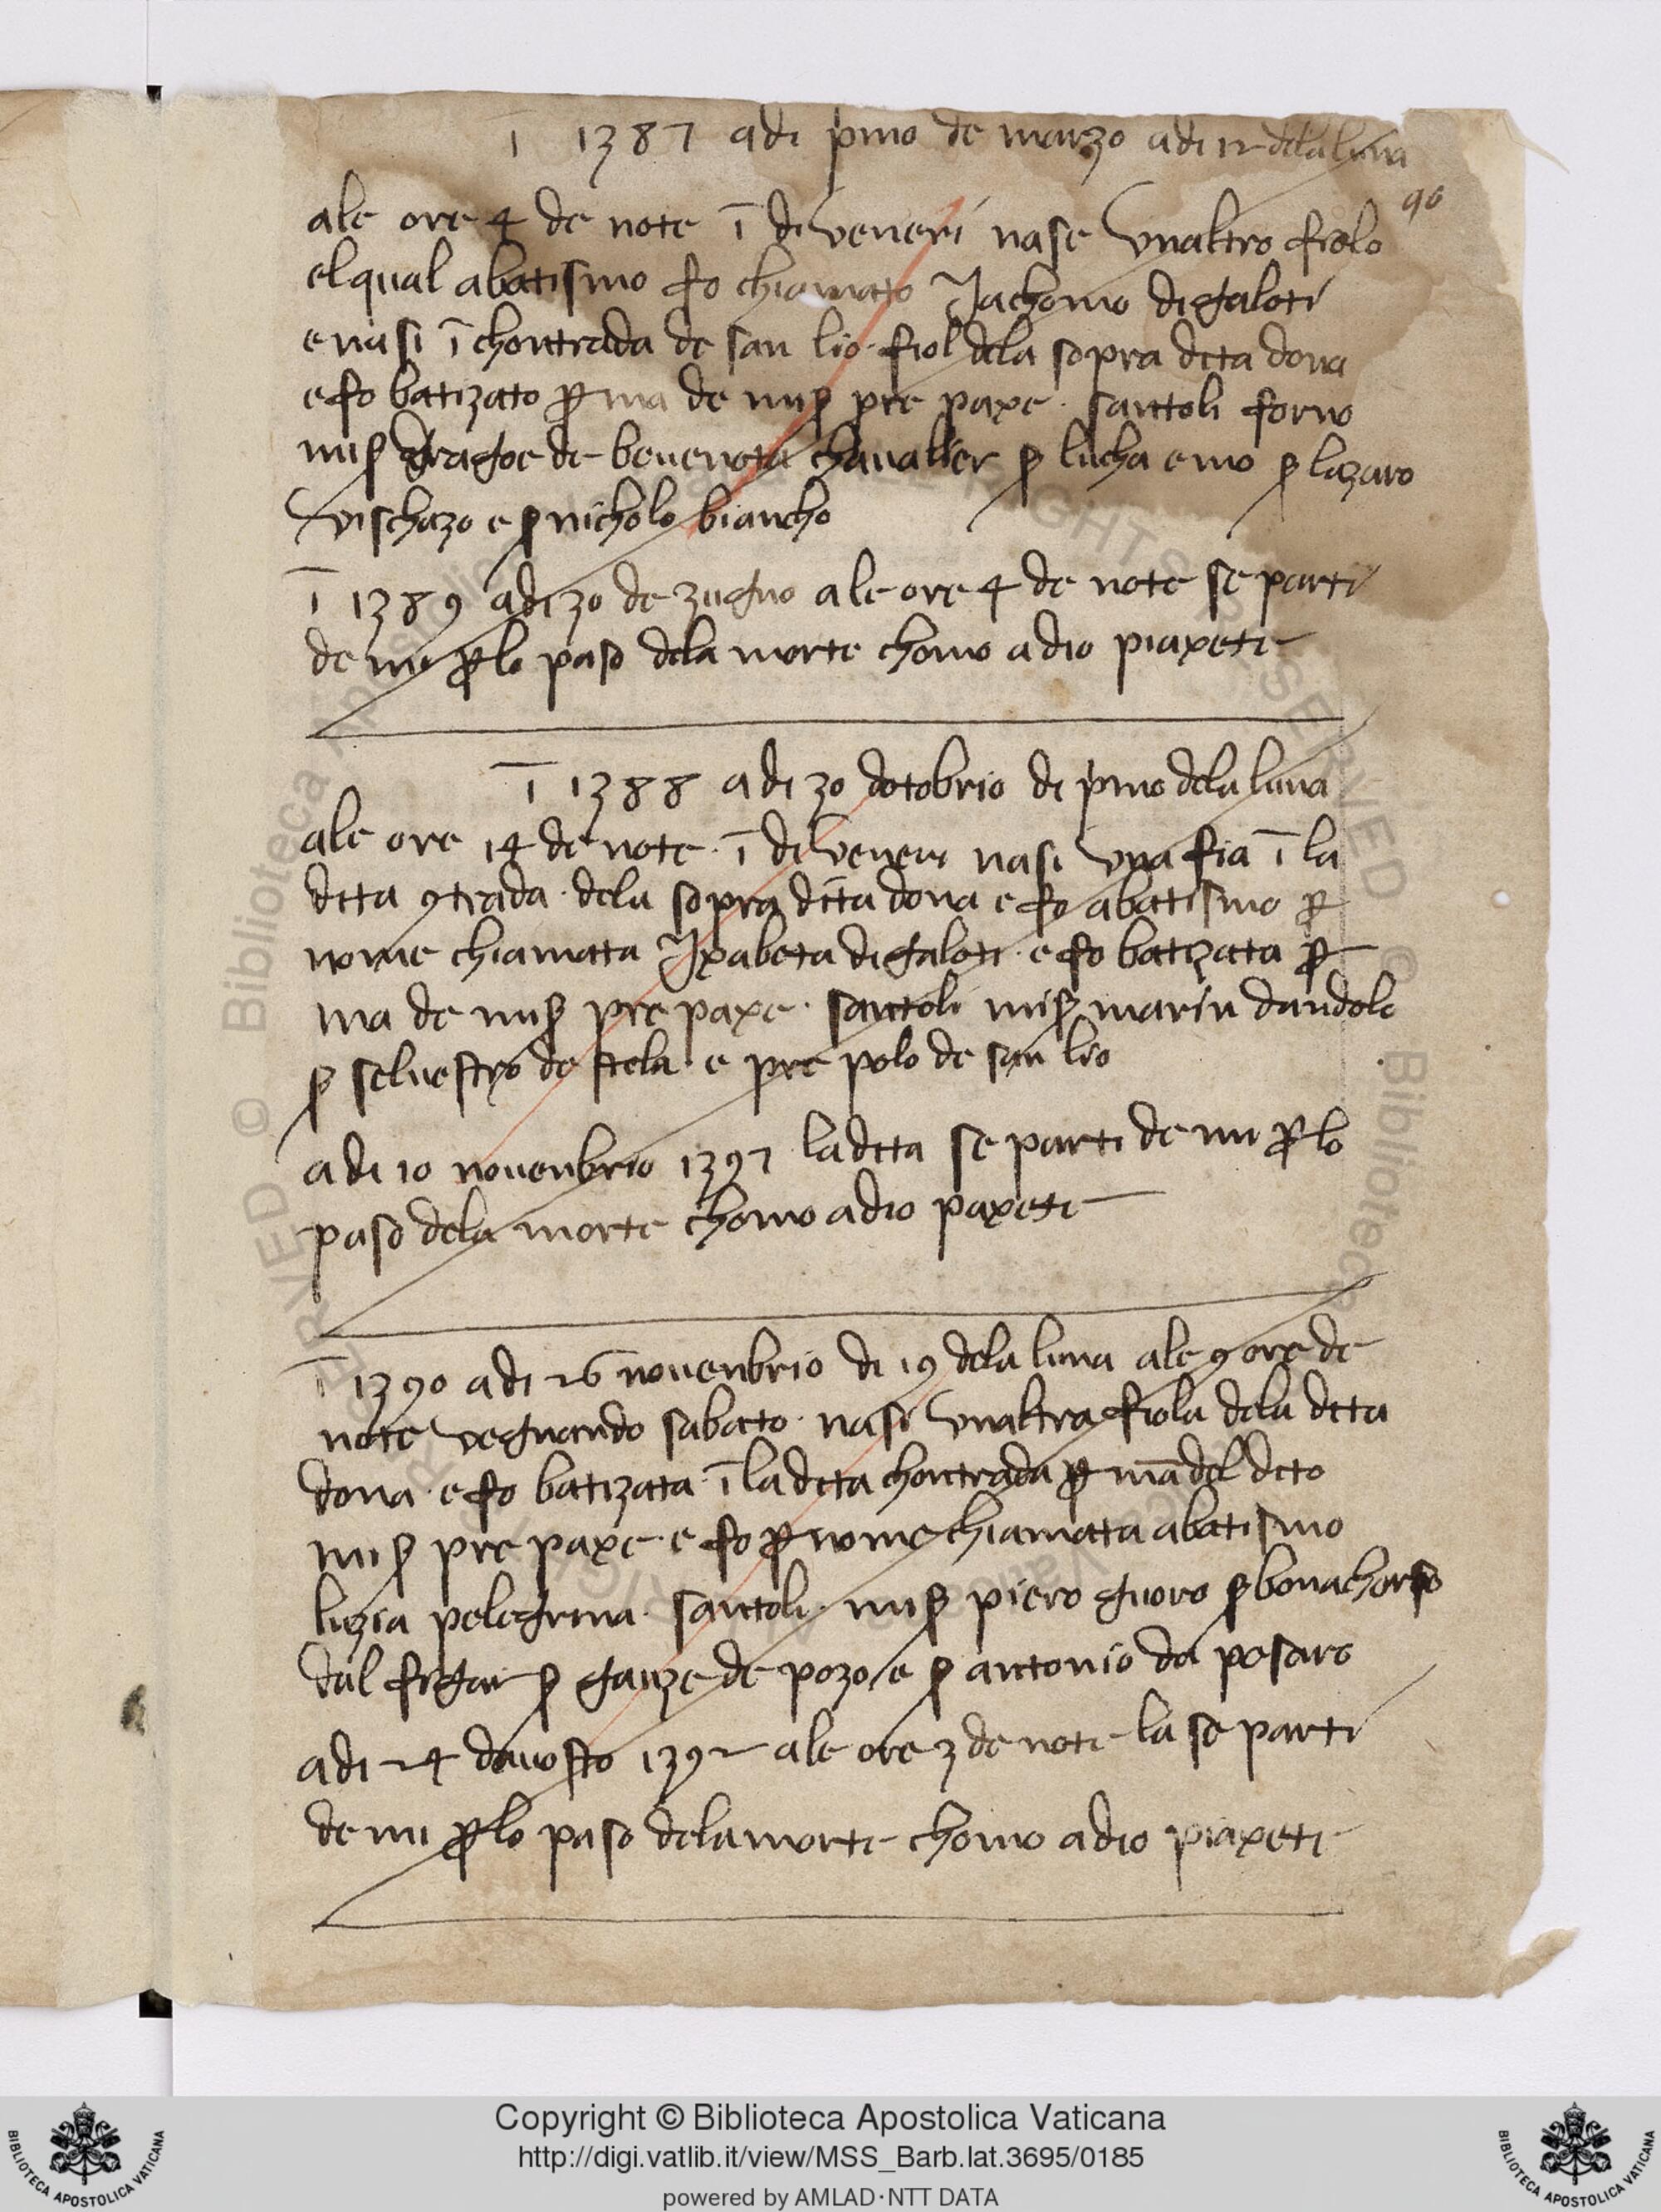 ī 1387 adi pmo de marzo adi 12 dela luna
90
ale ore 4 de note ī di veneri nase vnaltro fiolo
el qual abatismo fo chiamato Jachomo di galoti
e nasi ī chontrada de san lio · fiol dela sopra dcta dona
e fo batizato p ma de mis pre paxe · santoli forno
mis de chavalier s lucha emo s lazaro
vischazo e s nicholo biancho
ī 1389 adi 30 de zugno ale ore 4 de note se parti
de mi plo paso dela morte chomo a dio piaxete
ī 1388 adi 30 dotobrio di pmo dela luna
ale ore 14 de note · ī di veneri nasi vna fia ī la
dcta 9trada · dela sopra dcta dona e fo abatismo p
nome chiamata Jxabeta di galoti · e fo batizata p
ma de mis pre paxe · santoli mis marin dandolo
s seluestro de stela · e pre polo de san lio
adi 10 nouenbrio 1397 la dcta se parti de mi plo
paso dela morte chomo a dio paxete
ī 1390 adi 26 nouenbrio di 19 dela luna ale 9 ore de
note vegnando sabato · nasi vnaltra fiola dela dcta
dona · e fo batizata · ī la dcta chontrada p mā del dcto
mis pre paxe · e fo p nome chiamata abatismo
luzia pelegrina · santoli · mis piero guoro s bonachorso
dal s de pozo e s antonio da pesaro
adi 24 dauosto 1392 ale ore 3 de note la se parti
de mi plo paso dela morte chomo a dio piaxete
Copyright © Biblioteca Apostolica Vaticana
http://digi.vatlib.it/view/MSS_Barb.lat.3695/0185
powered by AMLAD·NTT DATA
BIBLIOTECA APOSTOLICA VATICANA
BIBLIOTECA APOSTOLICA VATICANA